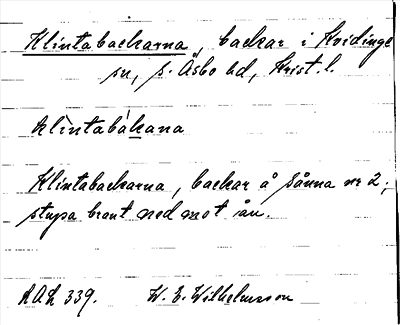 Klintabackarna, backar i Kvidinge
sn, s. Åsbo hd, Krist. l.
klìntabákana
Klintabackarna, backar å Sånna nr 2;
stupa brant ned mot ån.
AAL 339. W. E. Wilhelmsson